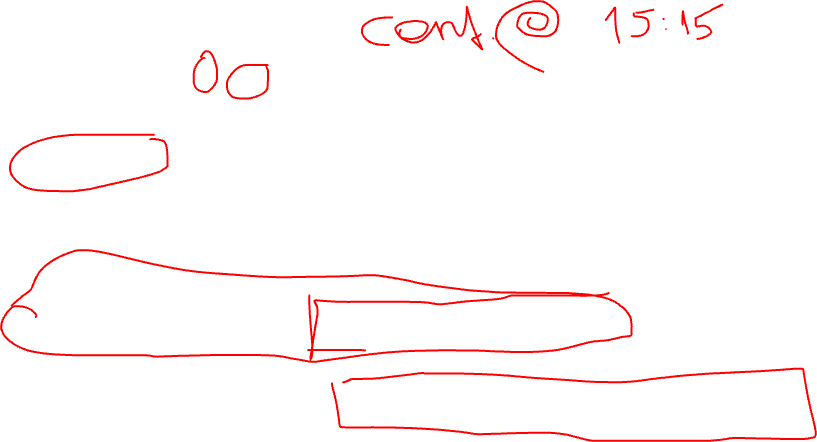 conf.@ 15:15